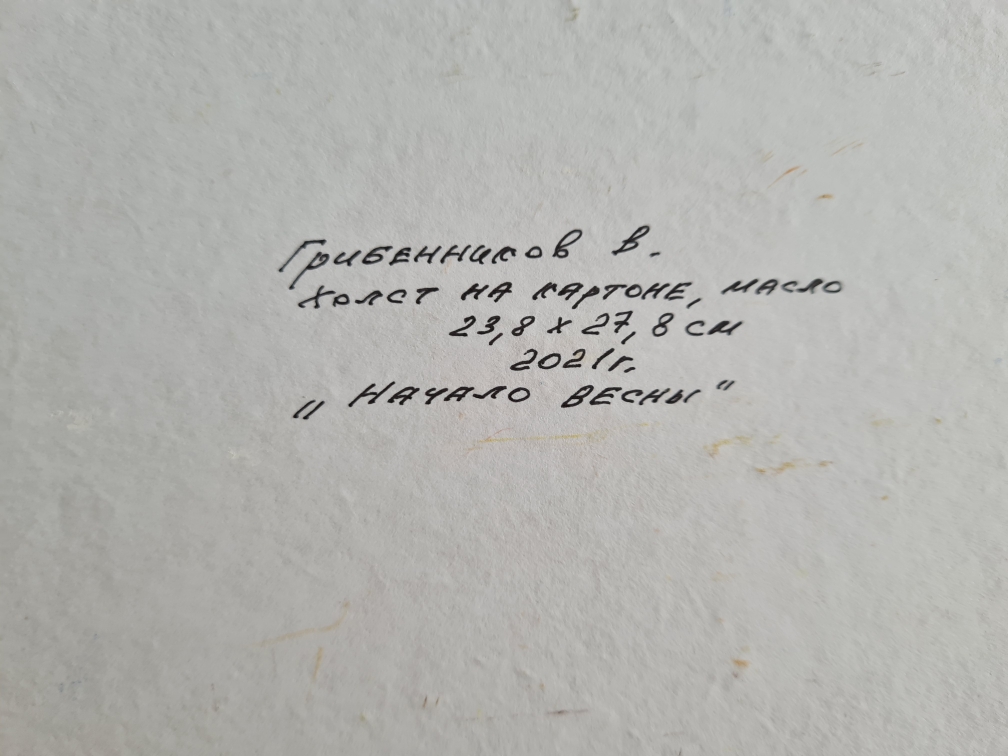 Грибенников В.
Холст на картоне, масло
23,8 х 27,8 см
2021г.
"Начало весны"